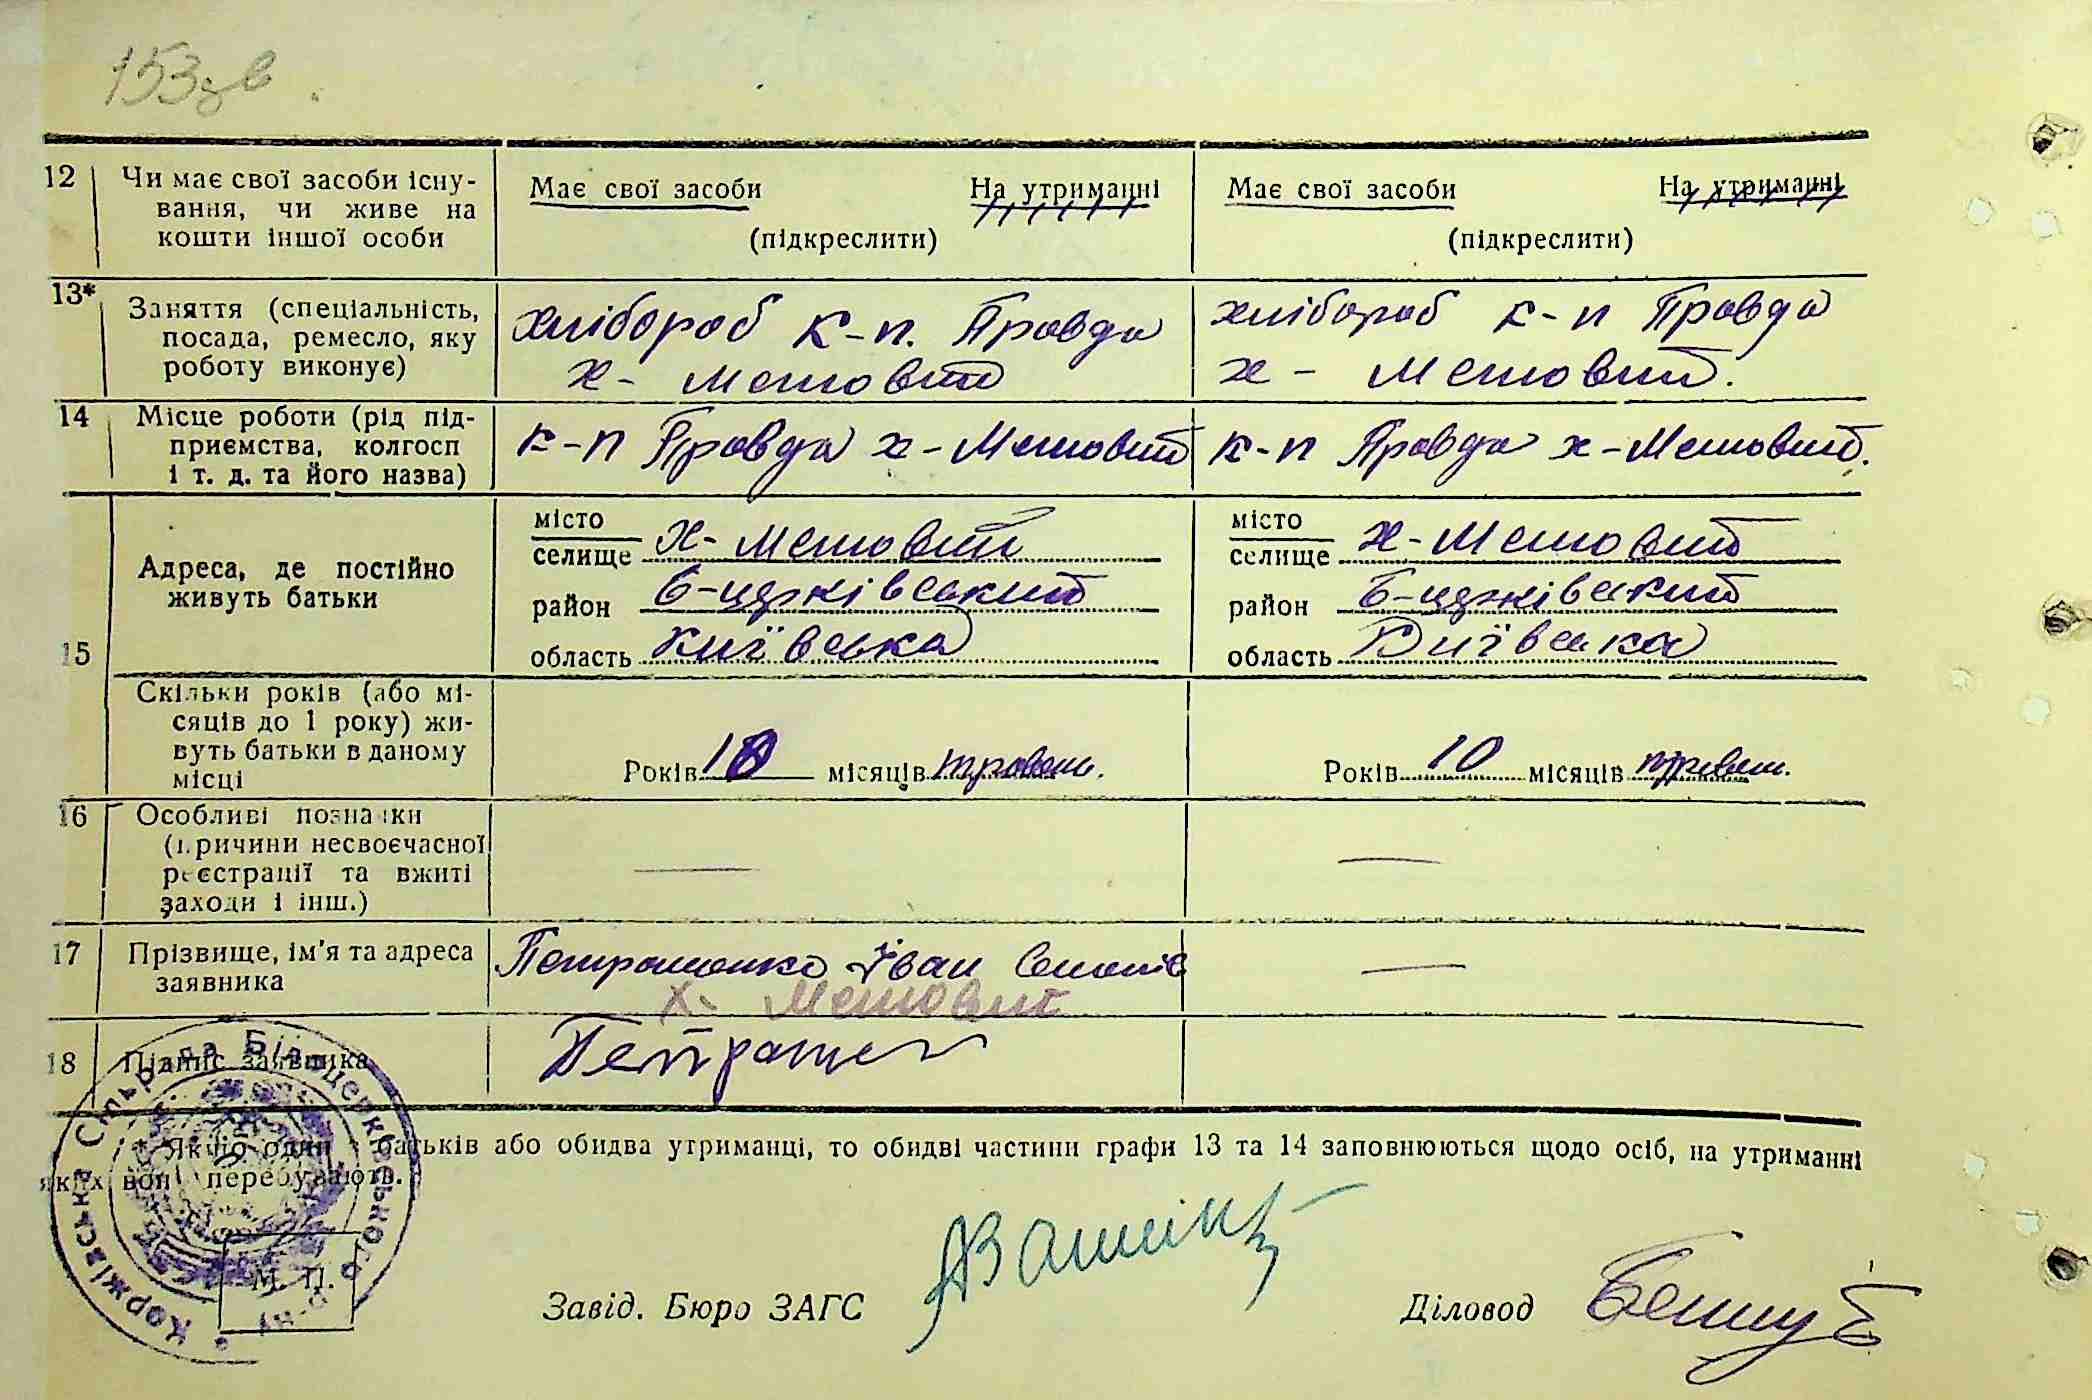 153 зв
12 Чи має свої засоби існу-
вання, чи живе на
кошти іншої особи
Має свої засоби На утриманні
(підкреслити)
Має свої засоби На утриманні
(підкреслити)
13* Заняття (спеціальність,
посада, ремесло, яку
роботу виконує)
хлібороб к-п. Правда
х-
хлібороб к-п Правда
х-
14 Місце роботи (рід під-
приємства, колгосп
і т. д. та його назва)
к-п Правда х-
к-п Правда х-
15 Адреса, де постійно
живуть батьки
місто
селище х-
район Б-церківський
область Київська
місто
селище х-
район Б-церківський
область Київська
Скільки років (або мі-
сяців до 1 року) жи-
вуть батьки в даному
місці
Років 10 місяців
Років 10 місяців
16 Особливі позначки
(причини несвоєчасної
реєстрації та вжиті
заходи і інш.)
17 Прізвище, ім'я та адреса
заявника
Петрашенко Іван
х-
18 Підпис заявника
Петрашен
* Якщо один з батьків або обидва утриманці, то обидві частини графи 13 та 14 заповнюються щодо осіб, на утриманні
яких вони перебувають.
Коржівська Сільрада Білоцерківського р-ну
М. П.
Завід. Бюро ЗАГС
Діловод